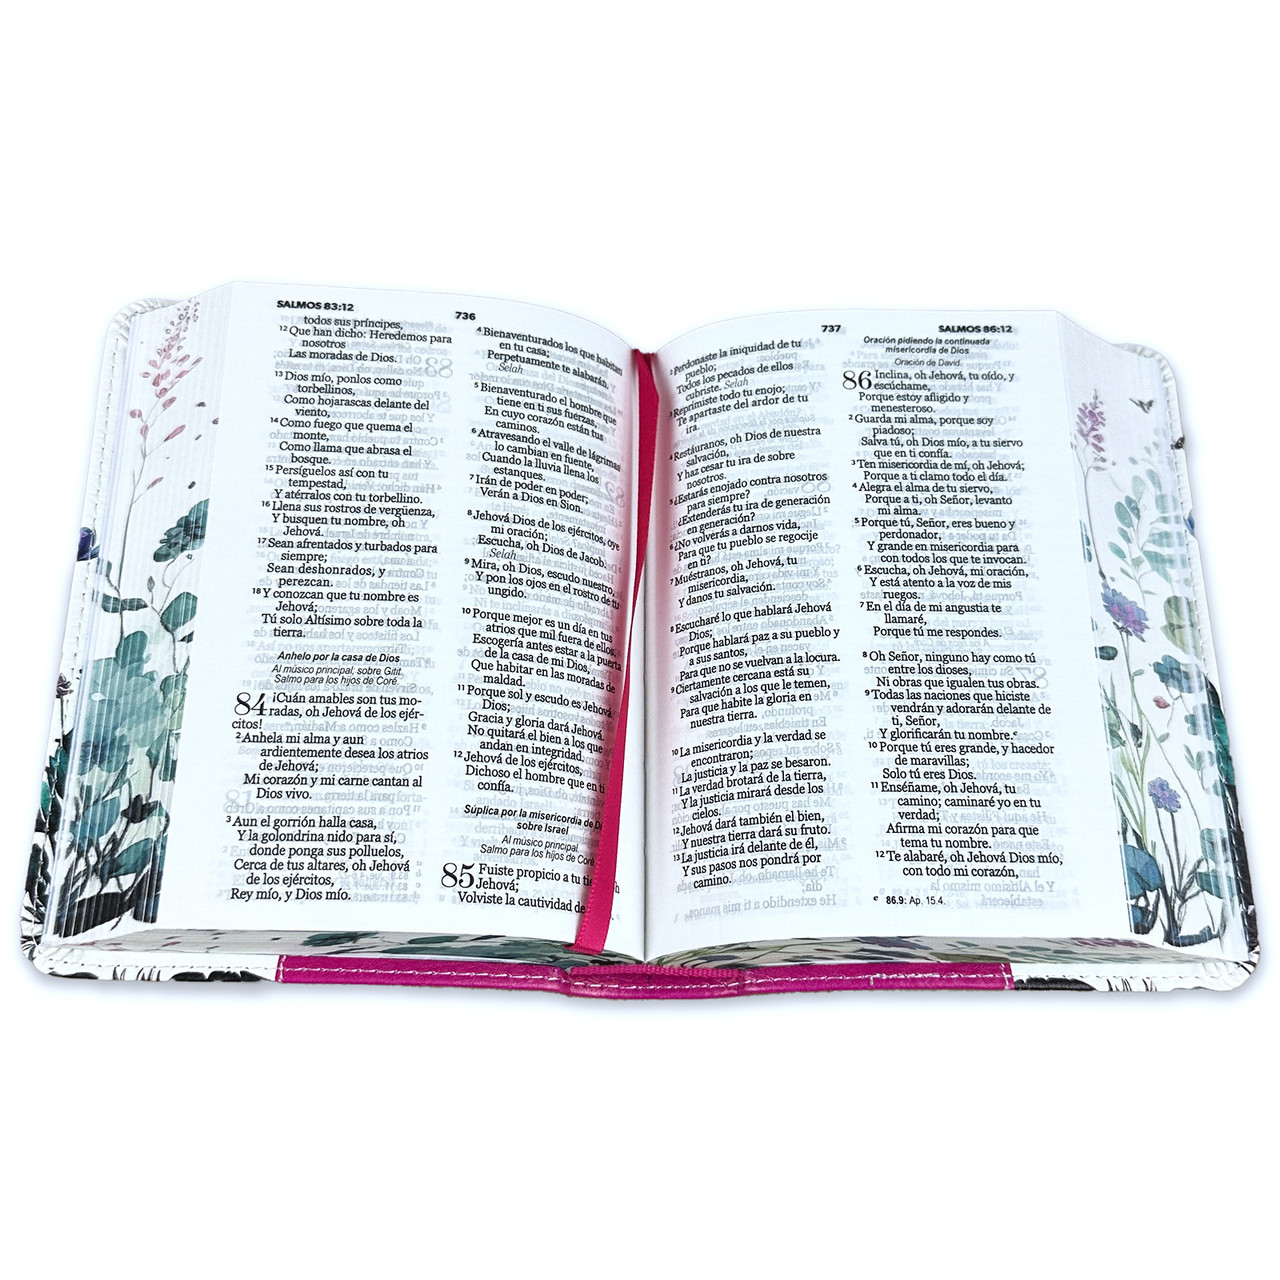 SALMOS 83:12
736
todos sus príncipes,
12 Que han dicho: Heredemos para
nosotros
Las moradas de Dios.
13 Dios mío, ponlos como
torbellinos,
Como hojarascas delante del
viento,
14 Como fuego que quema el
monte,
Como llama que abrasa el
bosque.
15 Persíguelos así con tu
tempestad,
Y atérralos con tu torbellino.
16 Llena sus rostros de vergüenza,
Y busquen tu nombre, oh
Jehová.
17 Sean afrentados y turbados para
siempre;
Sean deshonrados, y
perezcan.
18 Y conozcan que tu nombre es
Jehová;
Tú solo Altísimo sobre toda la
tierra.
Anhelo por la casa de Dios
Al músico principal; sobre Gitit.
Salmo para los hijos de Coré.
84 ¡Cuán amables son tus mo-
radas, oh Jehová de los ejér-
citos!
2 Anhela mi alma y aun
ardientemente desea los atrios
de Jehová;
Mi corazón y mi carne cantan al
Dios vivo.
3 Aun el gorrión halla casa,
Y la golondrina nido para sí,
donde ponga sus polluelos,
Cerca de tus altares, oh Jehová
de los ejércitos,
Rey mío, y Dios mío.
4 Bienaventurados los que habitan
en tu casa;
Perpetuamente te alabarán.
Selah
5 Bienaventurado el hombre que
tiene en ti sus fuerzas,
En cuyo corazón están tus
caminos.
6 Atravesando el valle de lágrimas
lo cambian en fuente,
Cuando la lluvia llena los
estanques.
7 Irán de poder en poder;
Verán a Dios en Sion.
8 Jehová Dios de los ejércitos, oye
mi oración;
Escucha, oh Dios de Jacob.
Selah
9 Mira, oh Dios, escudo nuestro,
Y pon los ojos en el rostro de tu
ungido.
10 Porque mejor es un día en tus
atrios que mil fuera de ellos.
Escogería antes estar a la puerta
de la casa de mi Dios,
Que habitar en las moradas de
maldad.
11 Porque sol y escudo es Jehová
Dios;
Gracia y gloria dará Jehová.
No quitará el bien a los que
andan en integridad.
12 Jehová de los ejércitos,
Dichoso el hombre que en ti
confía.
Súplica por la misericordia de Di
sobre Israel
Al músico principal.
Salmo para los hijos de Coré.
85 Fuiste propicio a tu
Jehová;
Volviste la cautividad de
737
SALMOS 86:12
2 Perdonaste la iniquidad de tu
pueblo;
Todos los pecados de ellos
cubriste. Selah
3 Reprimiste todo tu enojo;
Te apartaste del ardor de tu
ira.
4 Restáuranos, oh Dios de nuestra
salvación,
Y haz cesar tu ira de sobre
nosotros.
5 ¿Estarás enojado contra nosotros
para siempre?
¿Extenderás tu ira de generación
en generación?
6 ¿No volverás a darnos vida,
Para que tu pueblo se regocije
en ti?
7 Muéstranos, oh Jehová, tu
misericordia,
Y danos tu salvación.
8 Escucharé lo que hablará Jehová
Dios;
Porque hablará paz a su pueblo y
a sus santos,
Para que no se vuelvan a la locura.
9 Ciertamente cercana está su
salvación a los que le temen,
Para que habite la gloria en
nuestra tierra.
10 La misericordia y la verdad se
encontraron;
La justicia y la paz se besaron.
11 La verdad brotará de la tierra,
Y la justicia mirará desde los
cielos.
12 Jehová dará también el bien,
Y nuestra tierra dará su fruto.
13 La justicia irá delante de él,
Y sus pasos nos pondrá por
camino.
Oración pidiendo la continuada
misericordia de Dios
Oración de David.
86 Inclina, oh Jehová, tu oído, y
escúchame,
Porque estoy afligido y
menesteroso.
2 Guarda mi alma, porque soy
piadoso;
Salva tú, oh Dios mío, a tu siervo
que en ti confía.
3 Ten misericordia de mí, oh Jehová;
Porque a ti clamo todo el día.
4 Alegra el alma de tu siervo,
Porque a ti, oh Señor, levanto
mi alma.
5 Porque tú, Señor, eres bueno y
perdonador,
Y grande en misericordia para
con todos los que te invocan.
6 Escucha, oh Jehová, mi oración,
Y está atento a la voz de mis
ruegos.
7 En el día de mi angustia te
llamaré,
Porque tú me respondes.
8 Oh Señor, ninguno hay como tú
entre los dioses,
Ni obras que igualen tus obras.
9 Todas las naciones que hiciste
vendrán y adorarán delante de
ti, Señor,
Y glorificarán tu nombre.c
10 Porque tú eres grande, y hacedor
de maravillas;
Solo tú eres Dios.
11 Enséñame, oh Jehová, tu
camino; caminaré yo en tu
verdad;
Afirma mi corazón para que
tema tu nombre.
12 Te alabaré, oh Jehová Dios mío,
con todo mi corazón,
c 86.9: Ap. 15.4.